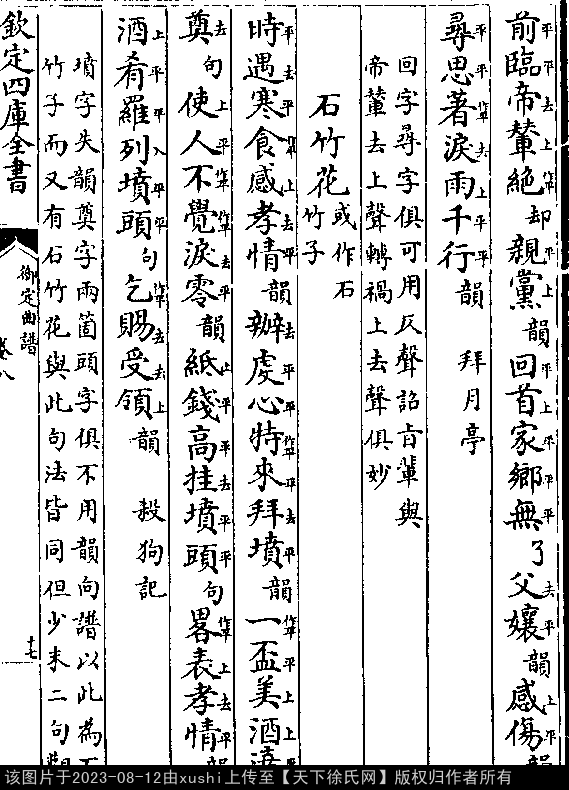 前臨帝輦絕却親黨韻回首家鄉無了父孃韻感傷韻
尋思著淚雨千行韻 拜月亭
回字尋字俱可用仄聲詔旨輩與
帝輦去上聲轉禍上去聲俱妙
石竹花 或作石
竹子
時遇寒食感孝情韻辦虔心特來拜墳韻一盃美酒
奠句使人不覺淚零韻紙錢高挂墳頭句畧表孝情韻
酒肴羅列墳頭句乞賜受領韻 殺狗記
墳字失韻奠字兩箇頭字俱不用韻向譜以此為
竹子而又有石竹花與此句法皆同但少末二句
欽定四庫全書
御定曲譜
卷八
十七
该图片于2023-08-12由xushi上传至【天下徐氏网】版权归作者所有